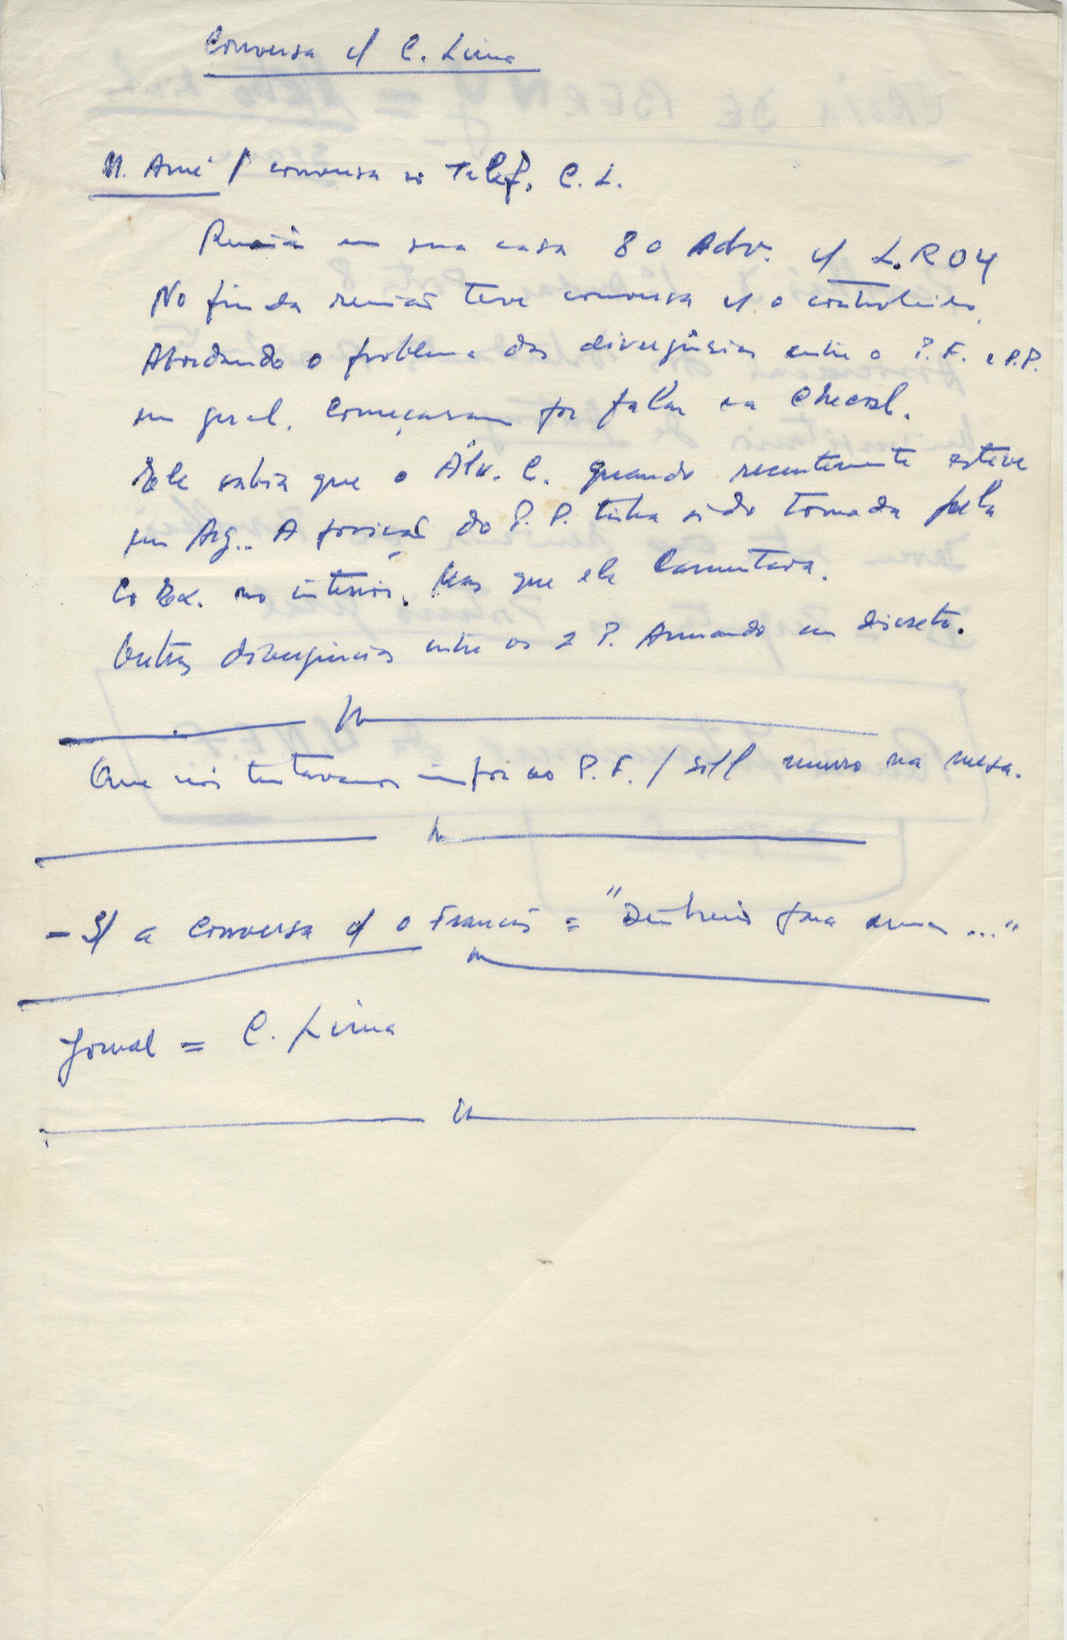 Conversa c/ C. Lima
M. Amé / conversa só Telef. C. L.
Reunião em sua casa 80 Adv. c/ L. ROY
No fim da reunião teve conversa c/ o controleiro.
Abordando o problema das divergências entre o P. F. e P.P.
em geral. Começaram por falar na Checosl.
Ele sabia que o Álv. C. quando recentemente esteve
em Arg.. A posição do P. P. tinha sido tomada pela
Co Ex. no interior. Mas que ele lamentava.
Outras divergências entre os 2 P. Armando em discreto.
Que nós tentavamos impor ao P. F. / murro na mesa.
- S/ a conversa c/ o Francês = " para ... "
Jornal = C. Lima